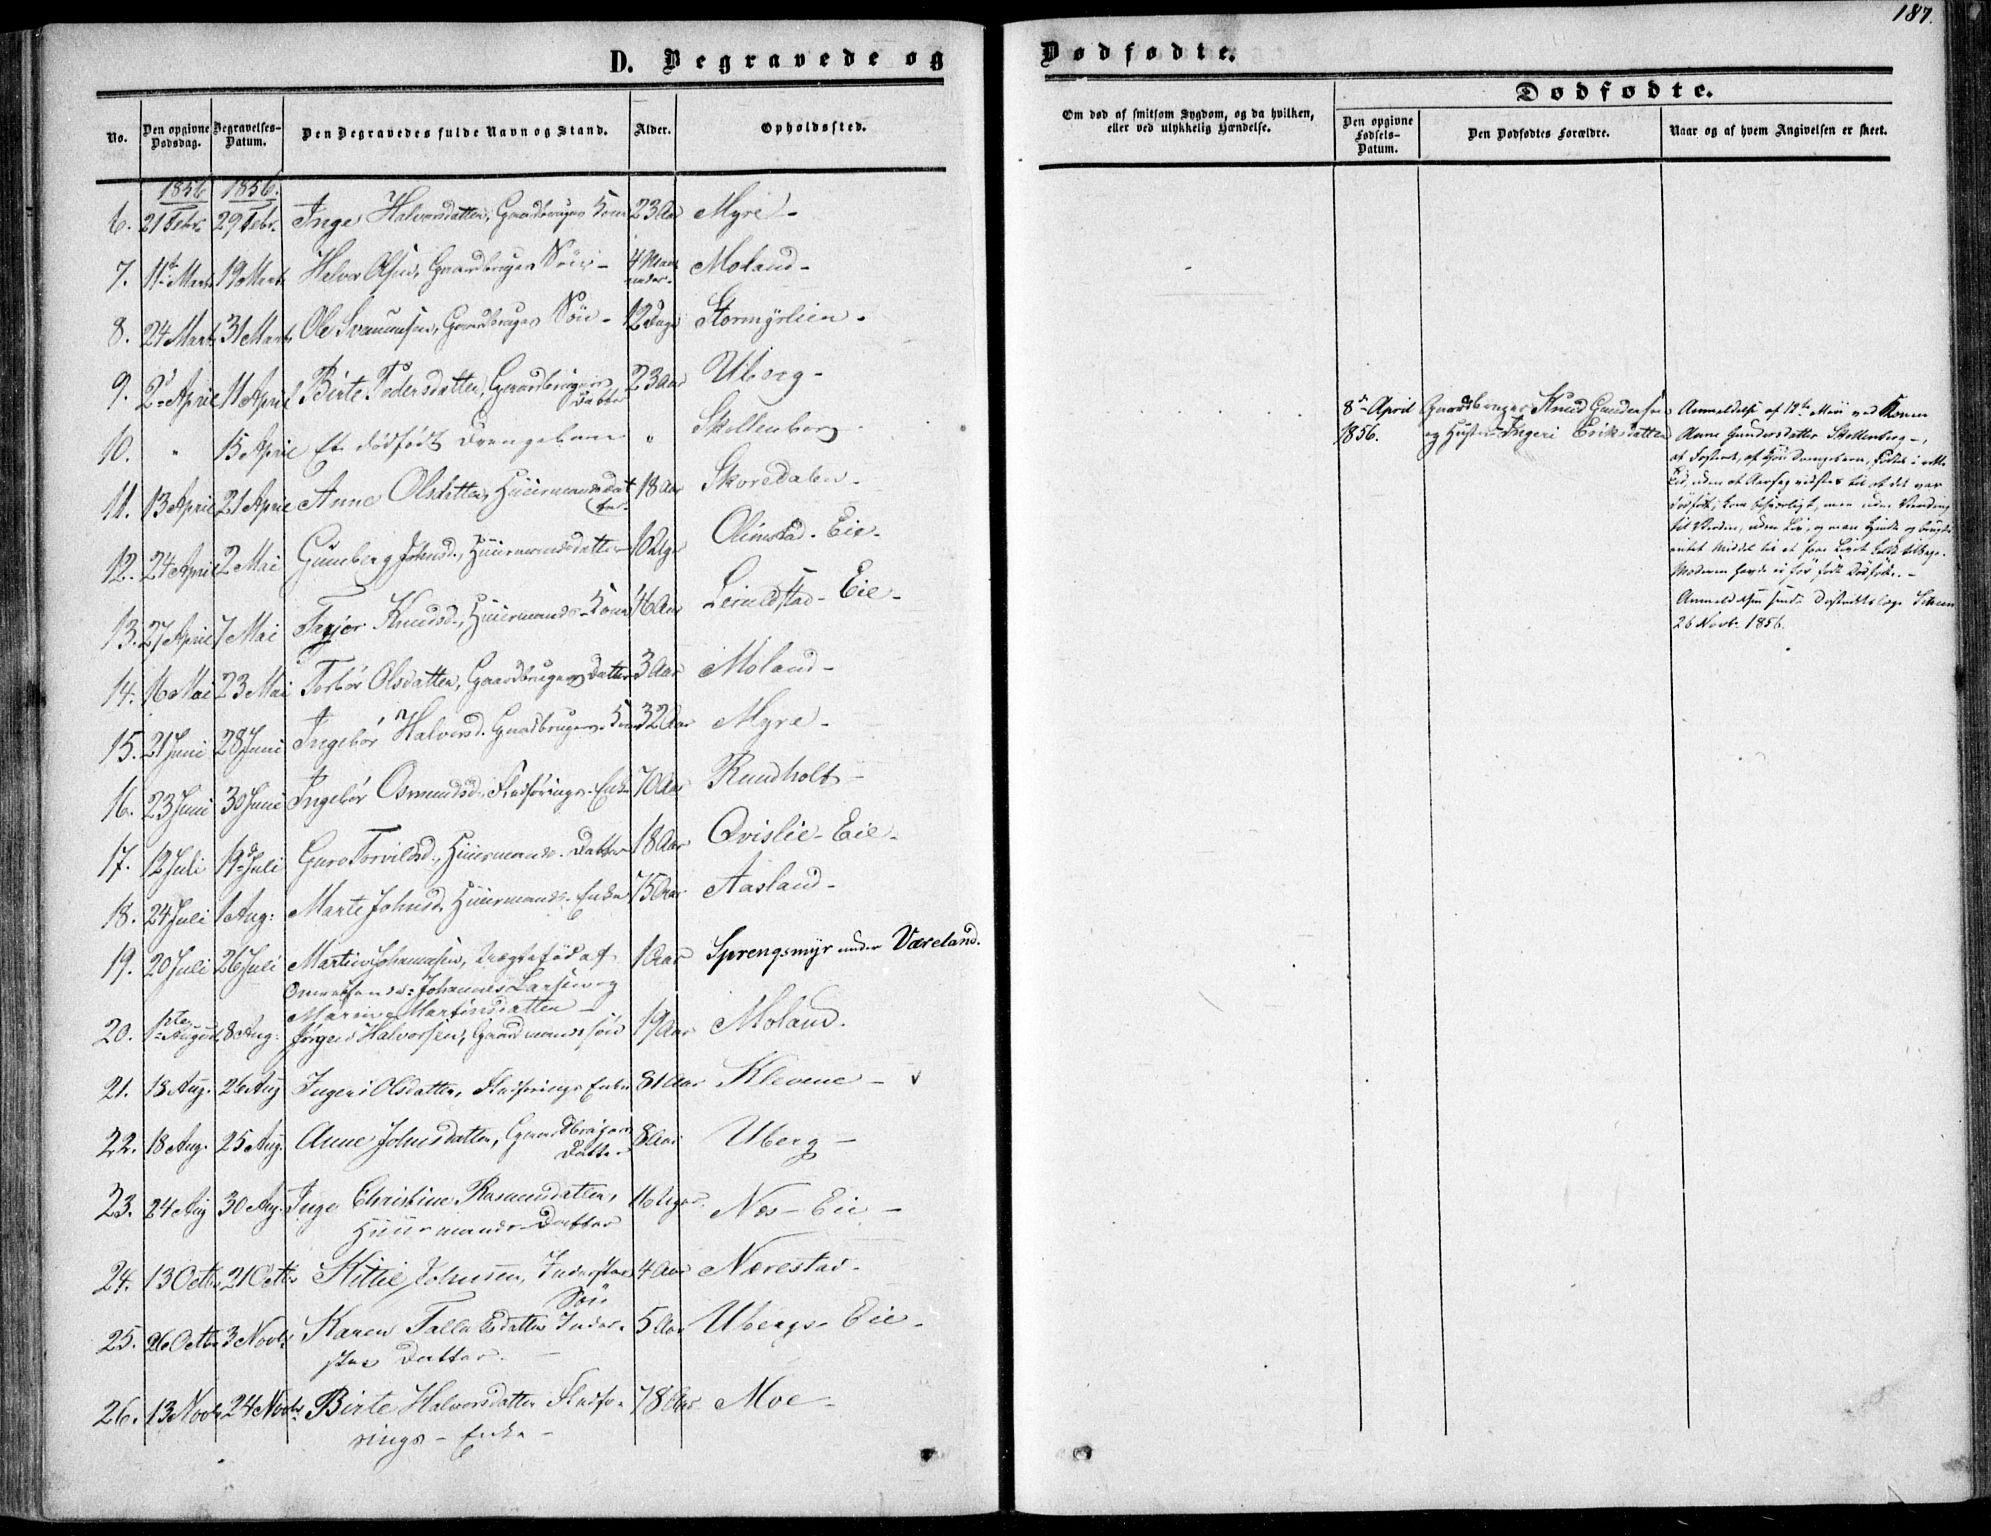 187.
D. Begravede og
Dødfødte.
No.
Den opgivne Dødsdag.
Begravelses-Datum.
Den Begravedes fulde Navn og Stand.
Alder.
Opholdssted.
Om død af smitsom Sygdom, og da hvilken, eller ved ulykkelig Hændelse.
Dødfødte.
Den opgivne Fødsels-Datum.
Den Dødfødtes Forældre.
Naar og af hvem Angivelsen er skeet.
1856 1856.
6. 21 Febr. 29 Febr. Inge Halvorsdatter, Gaardbrugers Kone 23 Aar Myre -
7. 11te Marts 19 Marts Halvor Olsen, Gaardbrugers Søn - 4 Maaneder - Moland -
8. 24 Marts 31 Marts Ole Svennunsen, Gaardbrugers Søn - 12 Dage Stormyrlien -
9. 2d April 11 April Birte Pedersdatter, Gaardbrugers Datter 23 Aar Uberg -
10. " 15 April Et dødfødt Drengebarn " Skellenberg
8de April 1856. Gaardbruger Knud Gundersen og Hustru Ingeri Eriksdatter
Anmeldelse af 12te Mai ved Konen
Anne Gundersdatter Skellenberg -,
at Fosteret, af Kjøn Drengebarn, fødtes i rette
Tid, uden at Aarsag vidstes til at det var
dødfødt; kom
til Verden, uden Liv, og man
intet Middel til at faae Livet kaldt tilbage.
Moderen havde ei før født Dødfødte. -
Anmeldelsen sendt Districtslæge
26 Novbr. 1856.
11. 13 April 21 April Anne Olsdatter, Huusmandsdatter 18 Aar Skoredalen -
12. 24 April 2 Mai Guneborg Johnsd., Huusmandsdatter 16 Uger Olimstad - Eie -
13. 27 April 7 Mai Tarjer Knudsd., Huusmands-Kone 46 Aar Leiulfstad - Eie -
14. 16 Mai 23 Mai Torbør Olsdatter, Gaardbrugers Datter 3 Aar Moland -
15. 21 Juni 28 Juni Ingebør Halvorsd. Gaardbrugers - Kone 32 Aar Myre -
16. 23 Juni 30 Juni Ingebør Osmundsd. Fladførings-Enke 70 Aar Rundholt -
17. 12 Juli 19de Juli Guro Torvildsd., Huusmands-Datter 18 Aar Qvislie - Eie -
18. 24 Juli 1 Aug: Marte Johnsd. Huusmands-Enke 75 Aar Aasland -
19. 20 Juli 26 Juli Martin Johannesen, Uægtefød af
Johannes Larsen og
Maren Martinsdatter - 1 Aar Sprengsmyr under Væreland.
20. 1ste August 8 Aug: Jørgen Halvorsen, Gaardmandssøn 19 Aar Moland.
21. 18 Aug. 26 Aug Ingeri Olsdatter, Fladførings Enke 81 Aar Klevene -
22. 18 Aug. 25 Aug. Anne Johnsdatter, Gaardbrugers Datter 8 Aar Uberg -
23. 24 Aug 30 Aug. Inge Christine Rasmusdatter,
Huusmands-Datter 16 Uger. Nes - Eie -
24. 13 Octbr 21 Octbr Kittil Johnsen, Inderstes Søn 4 Aar Nærestad -
25. 26 Octbr 3 Novbr Karen Tallaksdatter Inderstes Datter. - 5 Aar Ubergs - Eie -
26. 13 Novbr 24 Novbr. Birte Halvorsdatter Fladførings - Enke - 78 Aar Moe -